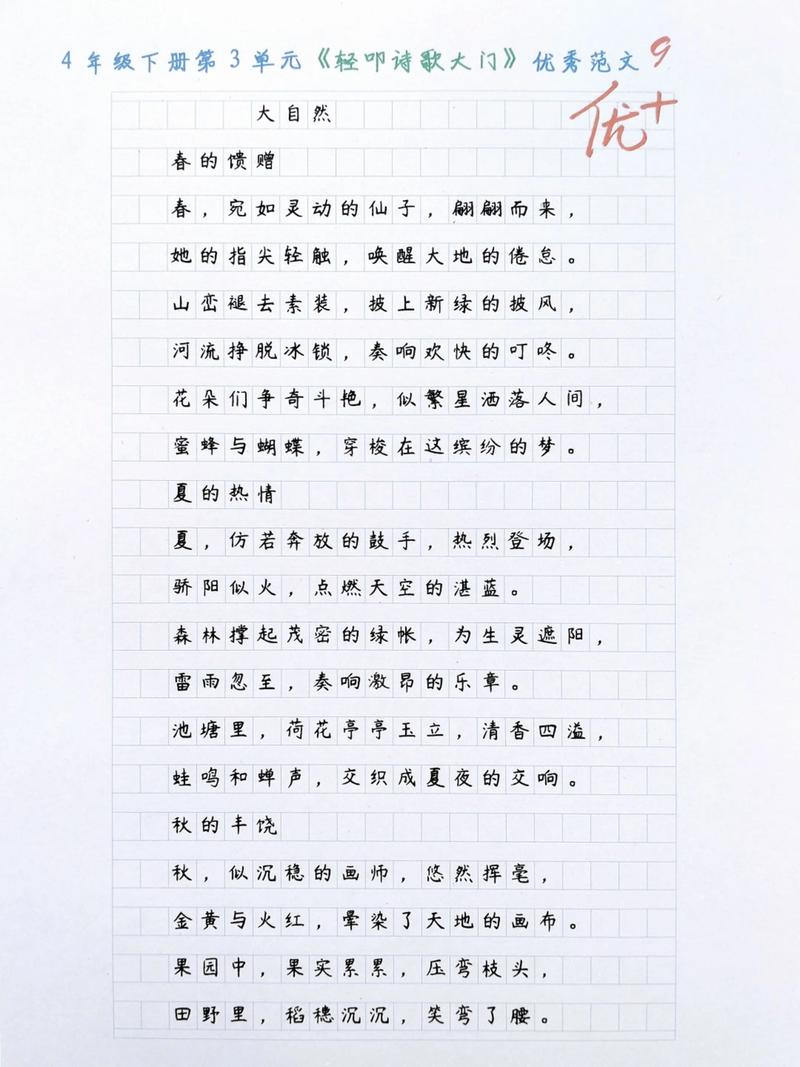 4年级下册第3单元《轻叩诗歌大门》优秀范文9
优+
大自然
春的馈赠
春，宛如灵动的仙子，翩翩而来，
她的指尖轻触，唤醒大地的倦怠。
山峦褪去素装，披上新绿的披风，
河流挣脱冰锁，奏响欢快的叮咚。
花朵们争奇斗艳，似繁星洒落人间，
蜜蜂与蝴蝶，穿梭在这缤纷的梦。
夏的热情
夏，仿若奔放的鼓手，热烈登场，
骄阳似火，点燃天空的湛蓝。
森林撑起茂密的绿帐，为生灵遮阳，
雷雨忽至，奏响激昂的乐章。
池塘里，荷花亭亭玉立，清香四溢，
蛙鸣和蝉声，交织成夏夜的交响。
秋的丰饶
秋，似沉稳的画师，悠然挥毫，
金黄与火红，晕染了天地的画布。
果园中，果实累累，压弯枝头，
田野里，稻穗沉沉，笑弯了腰。